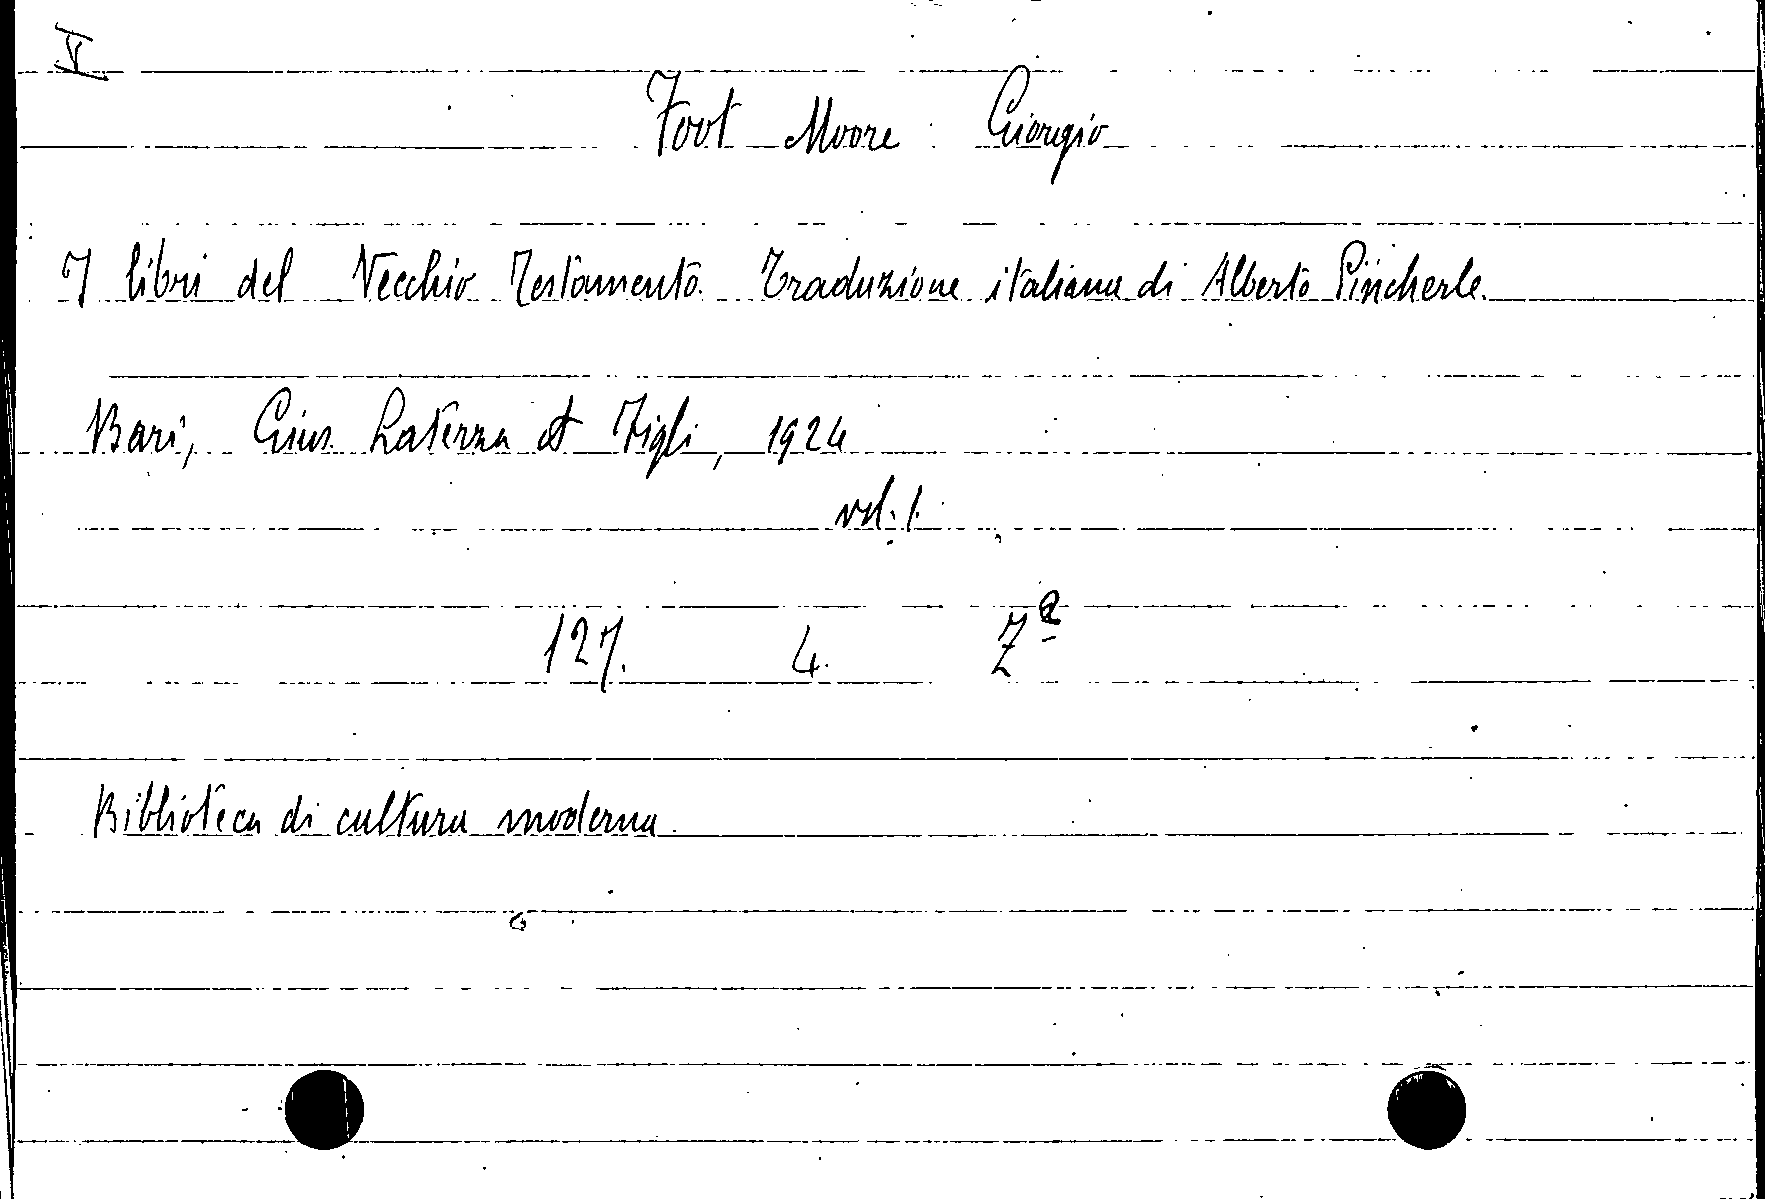 V
Foot Moore Giorgio
I libri del Vecchio Testamento. Traduzione italiana di Alberto Pincherle.
Bari, Gius. Laterza et Figli, 1924
vol. 1.
127. 4. Z a
Biblioteca di cultura moderna